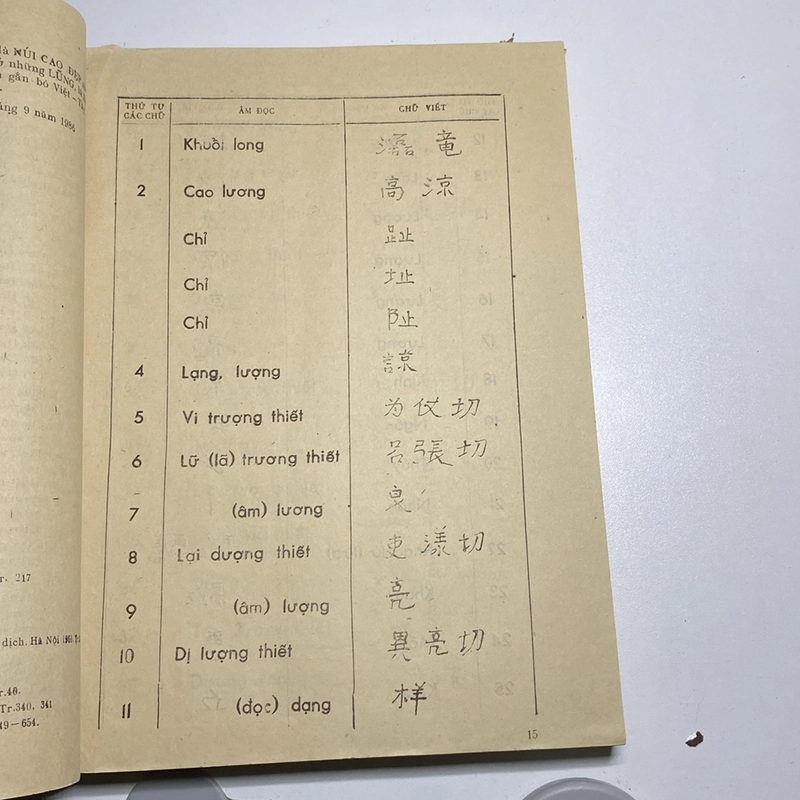 là NÚI CAO ĐẸP
những LŨNG, là
gắn bó Việt –
áng 9 năm 1986
r. 217
dịch. Hà Nội
r.40.
Tr.340, 341
49 – 654.
THỨ TỰ CÁC CHỮ ÂM ĐỌC CHỮ VIẾT
1 Khuổi long 竜
2 Cao lương 高 涼
Chỉ 趾
Chỉ 址
Chỉ 阯
4 Lạng, lượng 諒
5 Vi trượng thiết 为 仗 切
6 Lữ (lã) trương thiết 呂 張 切
7 (âm) lương 良
8 Lại dượng thiết 吏 漾 切
9 (âm) lượng 亮
10 Dị lượng thiết 異 亮 切
11 (đọc) dạng 样
15